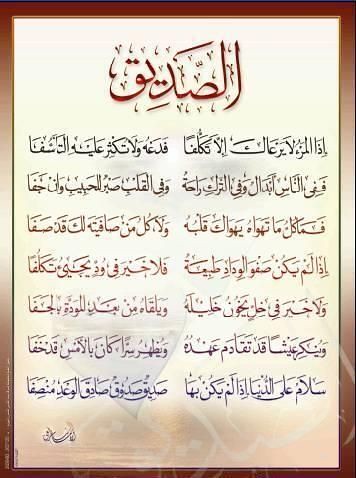 الصَّدِيق
إِذَا المَرْءُ لَا يَرْعَاكَ إِلَّا تَكَلُّفَا فَدَعْهُ وَلَا تُكْثِرْ عَلَيْهِ التَّأَسُّفَا
فَفِي النَّاسِ أَبْدَالٌ وَفِي التَّرْكِ رَاحَةٌ وَفِي القَلْبِ صَبْرٌ لِلحَبِيبِ وَإِنْ جَفَا
فَمَا كُلُّ مَا تَهْوَاهُ يَهْوَاكَ قَلْبُهُ وَلَا كُلُّ مَنْ صَافَيْتَهُ لَكَ قَدْ صَفَا
إِذَا لَمْ يَكُنْ صَفْوُ الوِدَادِ طَبِيعَةً فَلَا خَيْرَ فِي وُدٍّ يَجِيءُ تَكَلُّفَا
وَلَا خَيْرَ فِي خِلٍّ يَخُونُ خَلِيلَهُ وَيَلْقَاهُ مِنْ بَعْدِ المَوَدَّةِ بِالجَفَا
وَيُنْكِرُ عَيْشًا قَدْ تَقَادَمَ عَهْدُهُ وَيُظْهِرُ سِرًّا كَانَ بِالأَمْسِ قَدْ خَفَا
سَلَامٌ عَلَى الدُّنْيَا إِذَا لَمْ يَكُنْ بِهَا صَدِيقٌ صَدُوقٌ صَادِقُ الوَعْدِ مُنْصِفَا